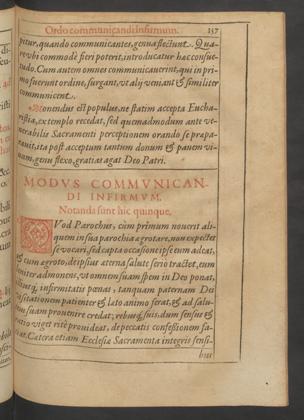 Ordo communicandi infirmum. 157
pitur, quando communicantes, genua flectunt. Qua-
re vbi commodè fieri poterit, introducatur hæc consue-
tudo. Cum autem omnes communicauerint, qui in pri-
mo fuerunt ordine, surgant, vt alij veniant & similiter
communicent.
Monendus est populus, ne statim accepta Eucha-
ristia, extemplo recedat, sed quemadmodum ante ve-
nerabilis Sacramenti perceptionem orando se præpa-
rauit, ita post acceptum tantum donum & panem vi-
uum, genu flexo, gratias agat Deo Patri.
MODVS COMMVNICAN-
DI INFIRMVM.
Notanda sunt hic quinque.
QVod Parochus, cùm primum nouerit ali-
quem in sua parochia ægrotare, non expectet
se vocari, sed capta occasione ipse eum adeat,
& cum ægroto, de ipsius æterna salute seriò tractet, eum
admoneat, vt omnem suam spem in Deo ponat,
infirmitatis pœnas, tanquam paternam Dei
visitationem patienter & læto animo ferat, & ad salu-
suam prouenire credat; rebusq; suis, dum sensus &
ratio viget ritè prouideat, de peccatis confessionem fa-
ciat. Cætera etiam Ecclesiæ Sacramenta integris sensi-
bus